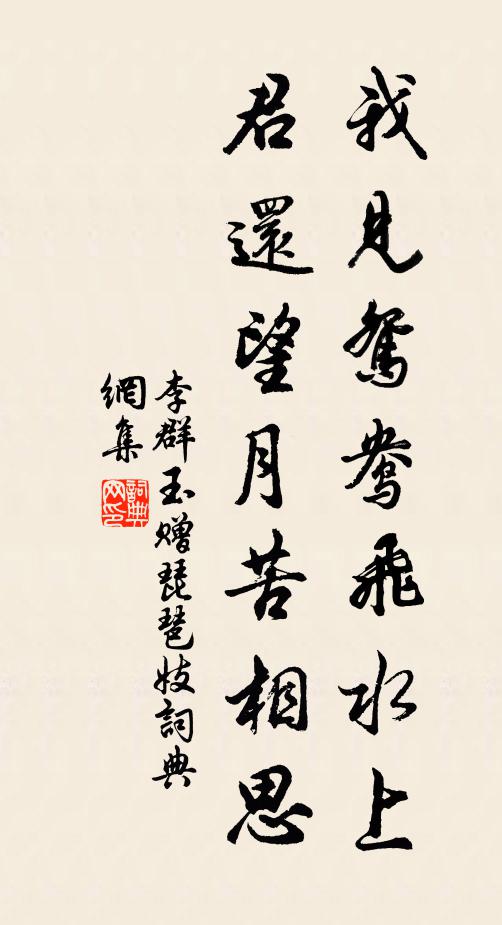 我見鴛鴦飛水上
君還望月苦相思
李群玉贈琵琶妓詞典
網集
詞典
网印